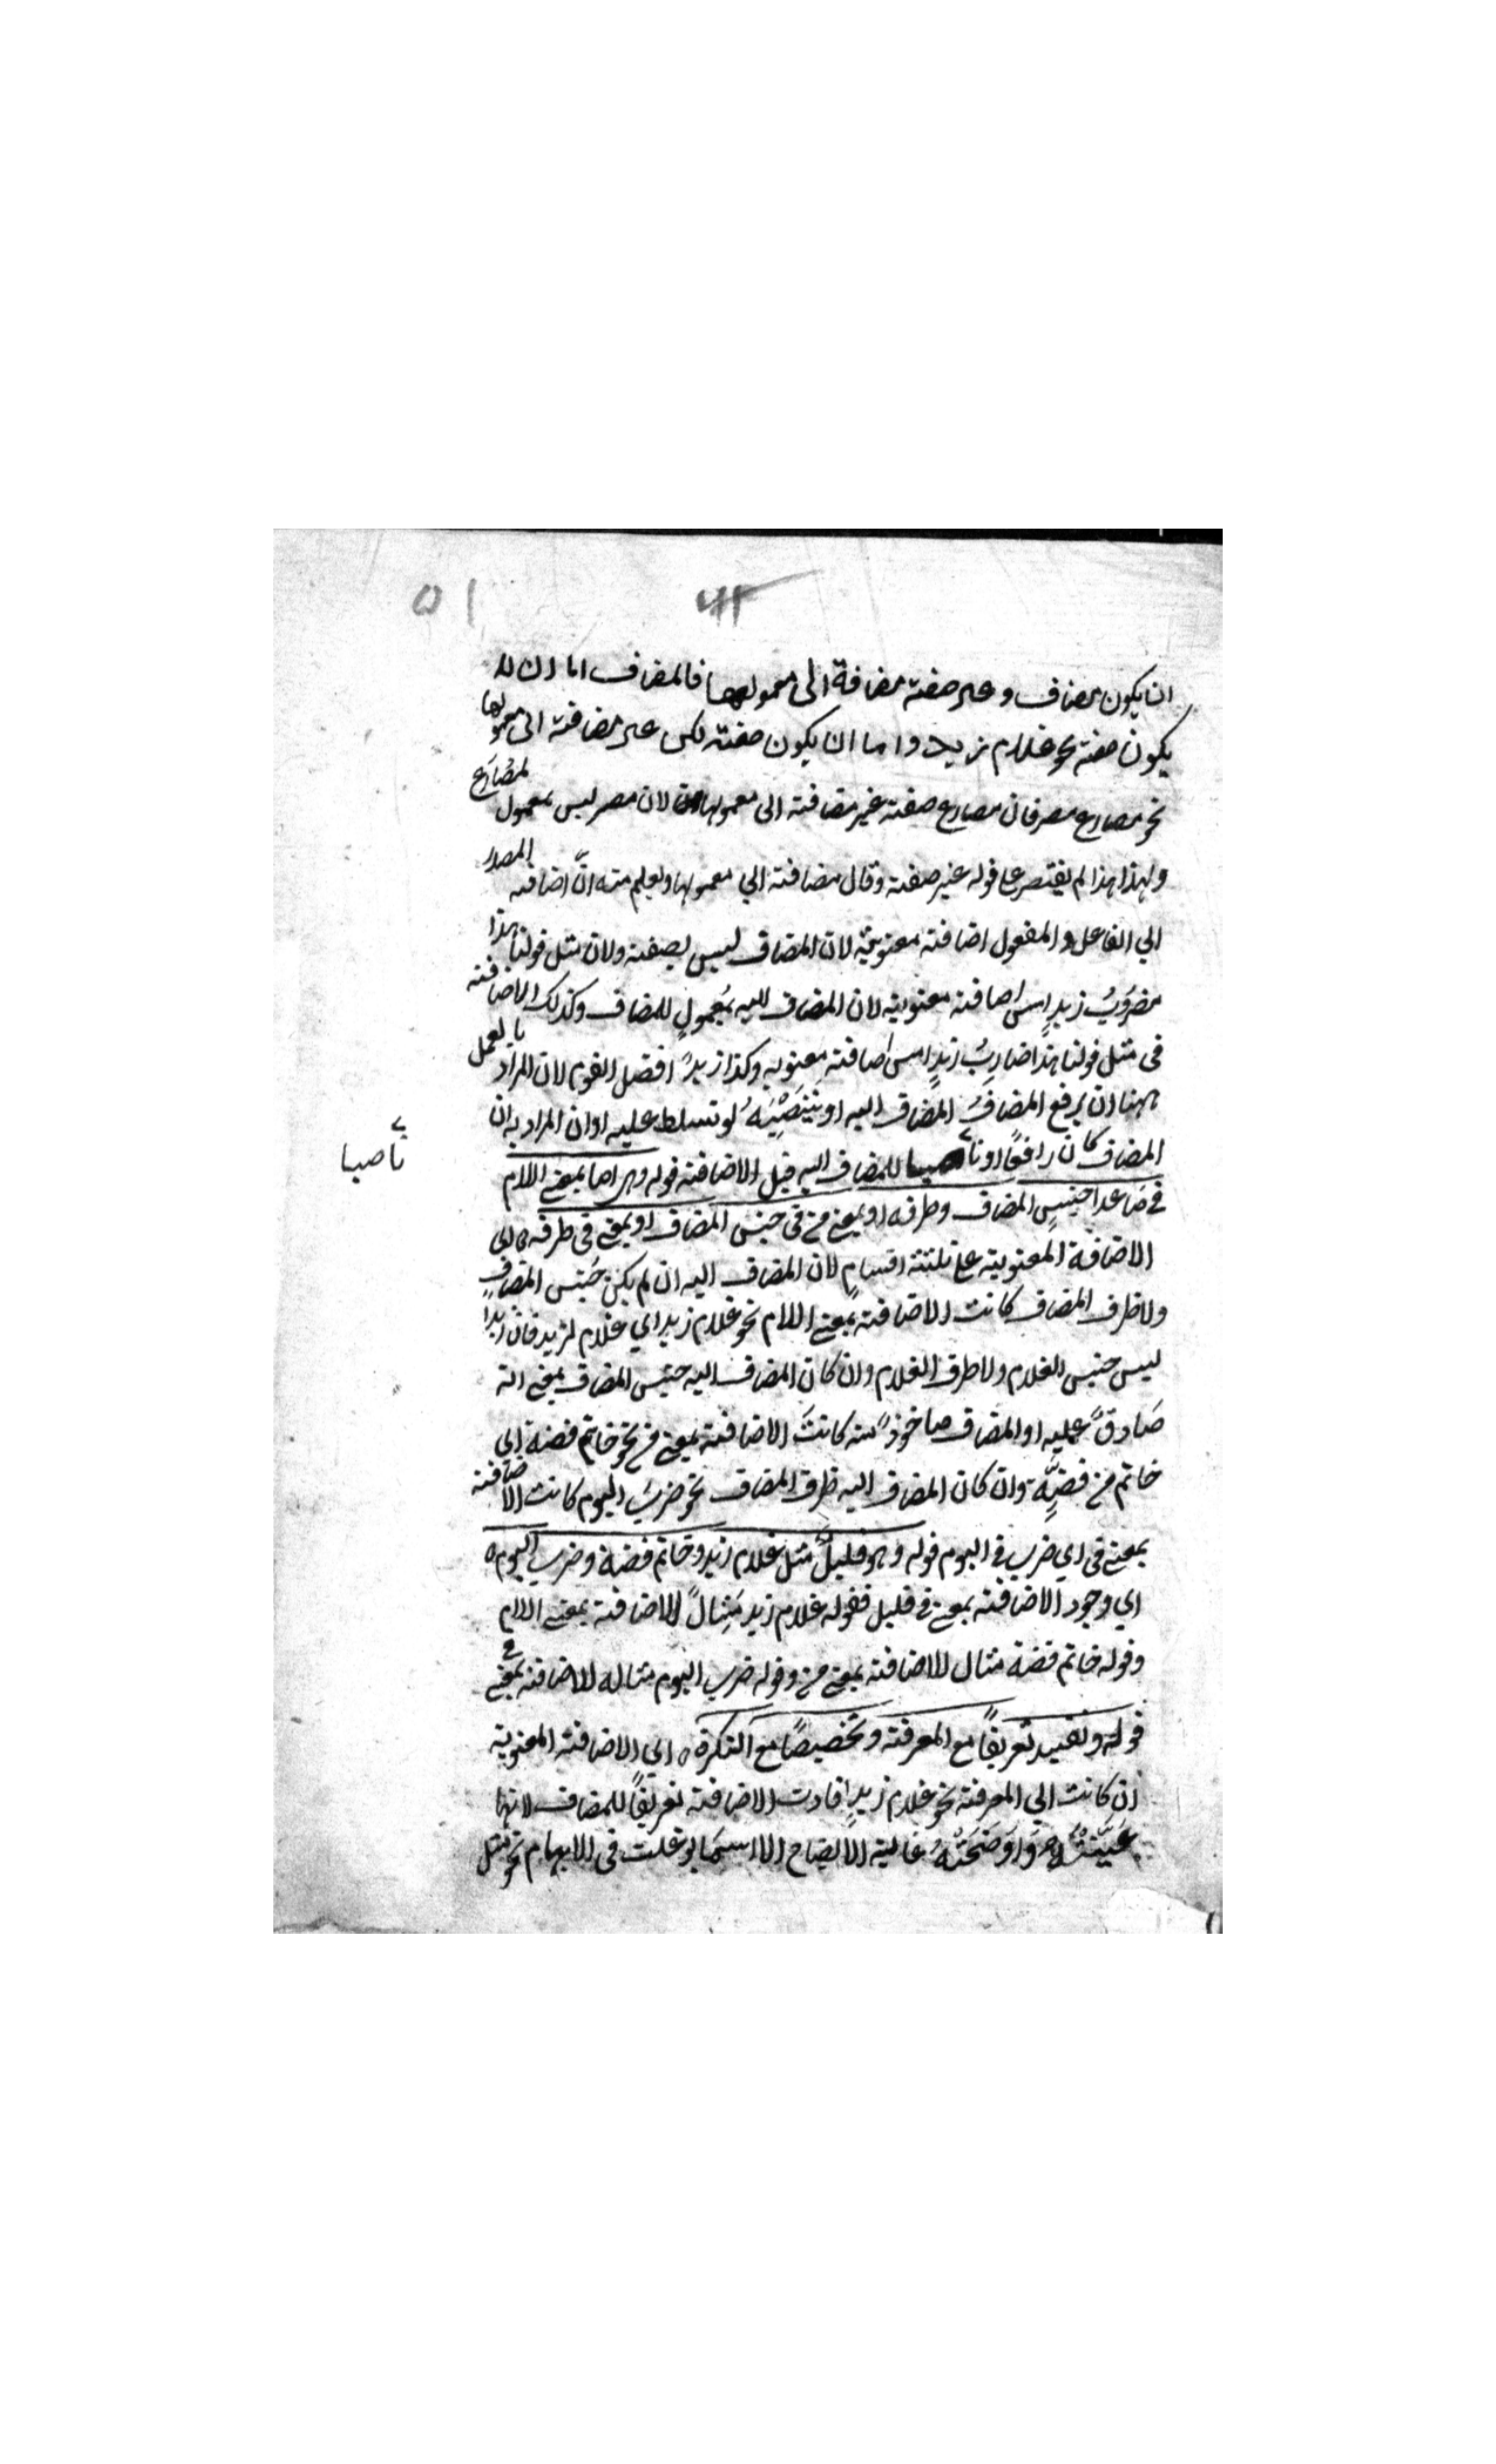 ٥١
ان يكون مضاف و غير صفته مضافة الى معمولها فالمضاف اما ان لا
يكون صفته نحو غلام زيد واما ان يكون صفته لكن غير مضافته الى معمولها
نحو مصارع مصر فان مصارع صفته غير مضافته الى معمولها لان مصر ليس بمعمول لمصارع
ولهذا لم يقتصر على قوله غير صفته وقال مضافته الي معمولها ويعلم منه انّ اضافته المصدر
الي الفاعل والمفعول اضافته معنويته لان المضاف ليس بصفته ولان مثل قولنا هذا
مضروبُ زيدٍ امس اضافته معنويته لان المضاف اليه بمعمولٍ للمضاف وكذلك الاضافته
فى مثل قولنا هذا ضاربُ زيدٍ امس اضافته معنويه وكذا زيدٌ افضل القوم لان المراد بالعمل
ههنا ان يرفع المضافُ المضاف اليه او ينصبه لو تسلط عليه او ان المراد به ان
المضاف كان رافعًا او ناصبا للمضاف اليه قبل الاضافته قوله وهى اما بمعنى اللام
ناصبا
فى ما عدا جنسِ المضاف وظرفه او بمعنى من فى جنس المضاف او بمعنى فى ظرفه اى
الاضافة المعنويته على ثلثته اقسامٍ لان المضاف اليه ان لم يكن جنس المضافِ
ولا ظرف المضاف كانت الاضافته بمعنى اللام نحو غلام زيد اي غلام لزيد فان زيدًا
ليس جنس الغلام ولا ظرف الغلام وان كان المضاف اليه جنس المضاف بمعنى انه
صَادقٌ عليه او المضاف ماخوذ منه كانتَ الاضافته بمعنى من نحو خاتم فضة اي
خاتم من فضّةٍ وان كان المضاف اليه ظرف المضاف نحو ضرب اليوم كانت الاضافته
بمعنى فى اي ضرب فى اليوم قوله وهو قليلٌ مثل غلام زيد وخاتم فضة وضرب اليوم
اي وجود الاضافته بمعنى فى قليل فقوله غلام زيد مثالٌ للاضافته بمعنى اللام
وقوله خاتم فضة مثال للاضافته بمعنى من وقوله ضرب اليوم مثاله للاضافته بمعنى فى
قوله وتفيد تعريفًا مع المعرفته وتخصيصًا مع النكرة اي الاضافته المعنويته
ان كانت الي المعرفته نحو غلام زيدٍ افادت الاضافته تعريفًا للمضاف لانها
عَيَّنَتْهُ وَاوَضَحَتْهُ غاية الايضاح الا اسما توغلت فى الابهام نحو مثل